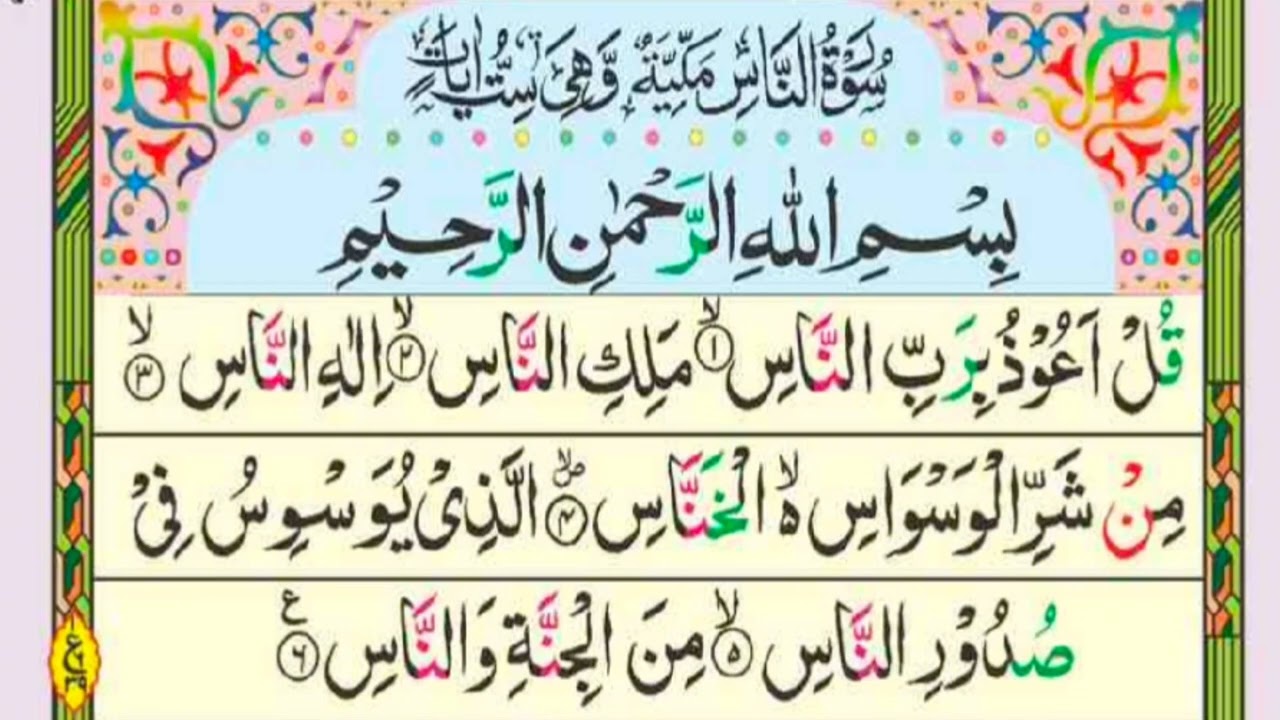 سُوْرَةُ النَّاسِ مَكِّيَّةٌ وَّهِیَ سِتُّ اٰیَاتٍ
بِسْمِ اللّٰهِ الرَّحْمٰنِ الرَّحِیْمِ
قُلْ اَعُوْذُ بِرَبِّ النَّاسِ ۙ﴿۱﴾ مَلِكِ النَّاسِ ۙ﴿۲﴾ اِلٰهِ النَّاسِ ۙ﴿۳﴾
مِنْ شَرِّ الْوَسْوَاسِ ۙ۬ الْخَنَّاسِ ﴿۴﴾ۙۖ الَّذِیْ یُوَسْوِسُ فِیْ
صُدُوْرِ النَّاسِ ۙ﴿۵﴾ مِنَ الْجِنَّةِ وَالنَّاسِ ﴿۶﴾ ع